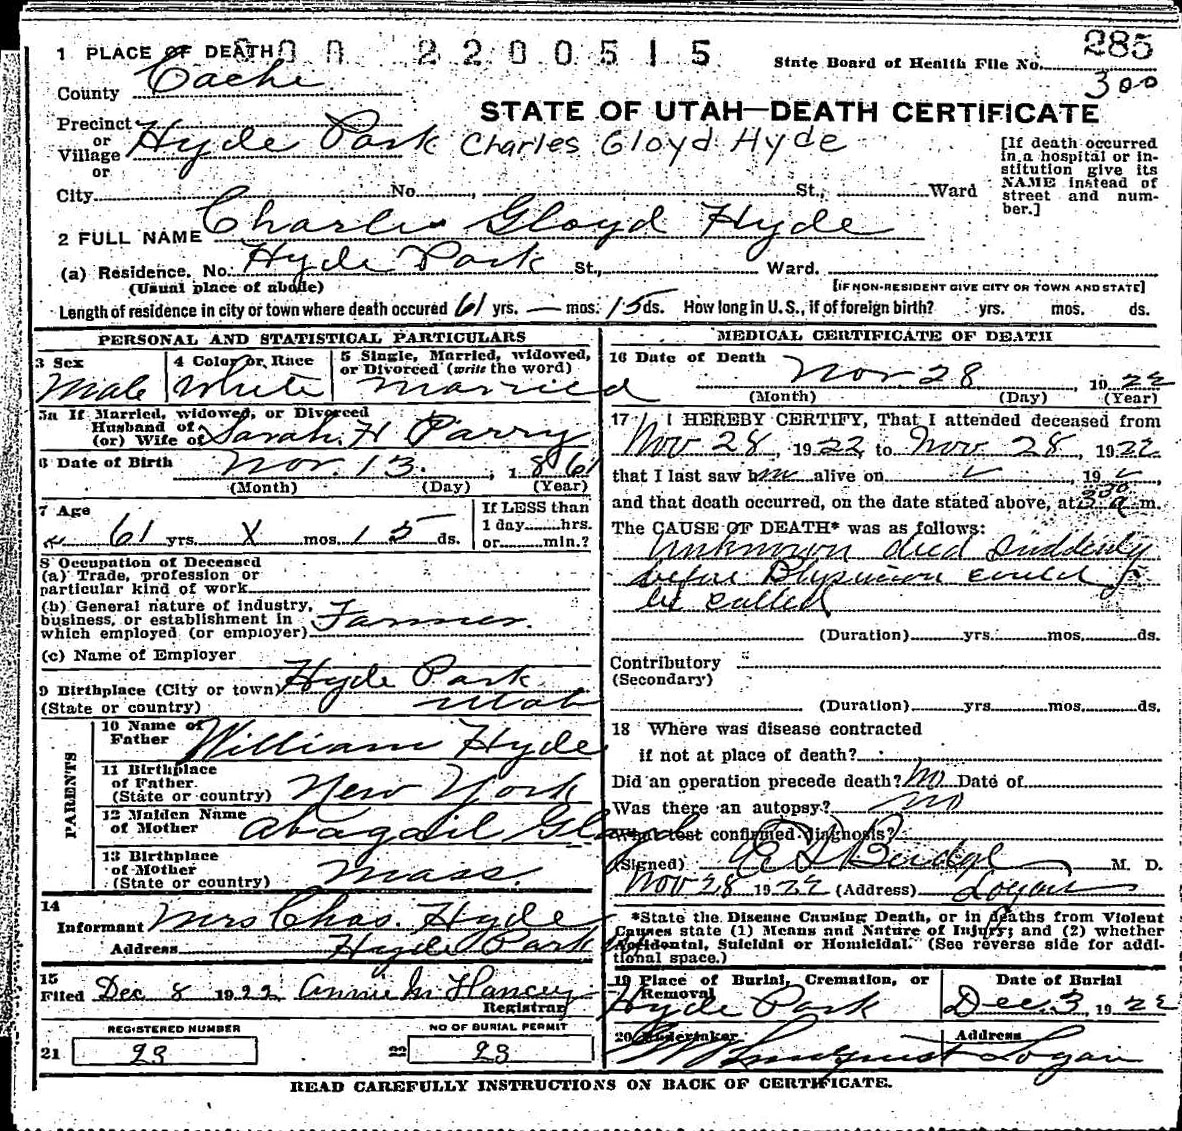 1 PLACE OF DEATH 000 2200515
State Board of Health File No. 285
County Cache
300
STATE OF UTAH—DEATH CERTIFICATE
Precinct or Village Hyde Park
Charles Gloyd Hyde
or
[If death occurred in a hospital or institution give its NAME instead of street and number.]
City No. , St., Ward
2 FULL NAME Charles Gloyd Hyde
(a) Residence. No. Hyde Park St., Ward.
(Usual place of abode) [IF NON-RESIDENT GIVE CITY OR TOWN AND STATE]
Length of residence in city or town where death occured 61 yrs. — mos. 15 ds. How long in U.S., if of foreign birth? yrs. mos. ds.
PERSONAL AND STATISTICAL PARTICULARS
3 Sex Male
4 Color or Race White
5 Single, Married, widowed, or Divorced (write the word) Married
5a If Married, widowed, or Divorced
Husband of
(or) Wife of Sarah H Parry
6 Date of Birth Nov. 13. , 1861
(Month) (Day) (Year)
7 Age 61 yrs. X mos. 15 ds.
If LESS than 1 day hrs. or min.?
8 Occupation of Deceased
(a) Trade, profession or particular kind of work
(b) General nature of industry, business, or establishment in which employed (or employer) Farmer.
(c) Name of Employer
9 Birthplace (City or town) Hyde Park
(State or country) Utah
PARENTS
10 Name of Father William Hyde
11 Birthplace of Father. (State or country) New York
12 Maiden Name of Mother Abagail Gloyd
13 Birthplace of Mother (State or country) Mass.
14
Informant Mrs Chas. Hyde
Address Hyde Park
15
Filed Dec 8 1922 Annie M Hancey
Registrar
REGISTERED NUMBER
21 23
NO OF BURIAL PERMIT
22 23
MEDICAL CERTIFICATE OF DEATH
16 Date of Death Nov 28 , 1922
(Month) (Day) (Year)
17 I HEREBY CERTIFY, That I attended deceased from
Nov 28, 1922, to Nov. 28, 1922.
that I last saw him alive on , 19
and that death occurred, on the date stated above, at 230 a m.
The CAUSE OF DEATH* was as follows:
Unknown died suddenly
before Physician could
be called
(Duration) yrs. mos. ds.
Contributory
(Secondary)
(Duration) yrs. mos. ds.
18 Where was disease contracted
if not at place of death?
Did an operation precede death? No Date of
Was there an autopsy? no
What test confirmed diagnosis?
(Signed) Budge M. D.
Nov 28 1922 (Address) Logan
*State the Disease Causing Death, or in deaths from Violent
Causes state (1) Means and Nature of Injury; and (2) whether
Accidental, Suicidal or Homicidal. (See reverse side for additional space.)
19 Place of Burial, Cremation, or Removal Hyde Park
Date of Burial Dec. 3 1922
20 Undertaker Lindquist
Address Logan
READ CAREFULLY INSTRUCTIONS ON BACK OF CERTIFICATE.